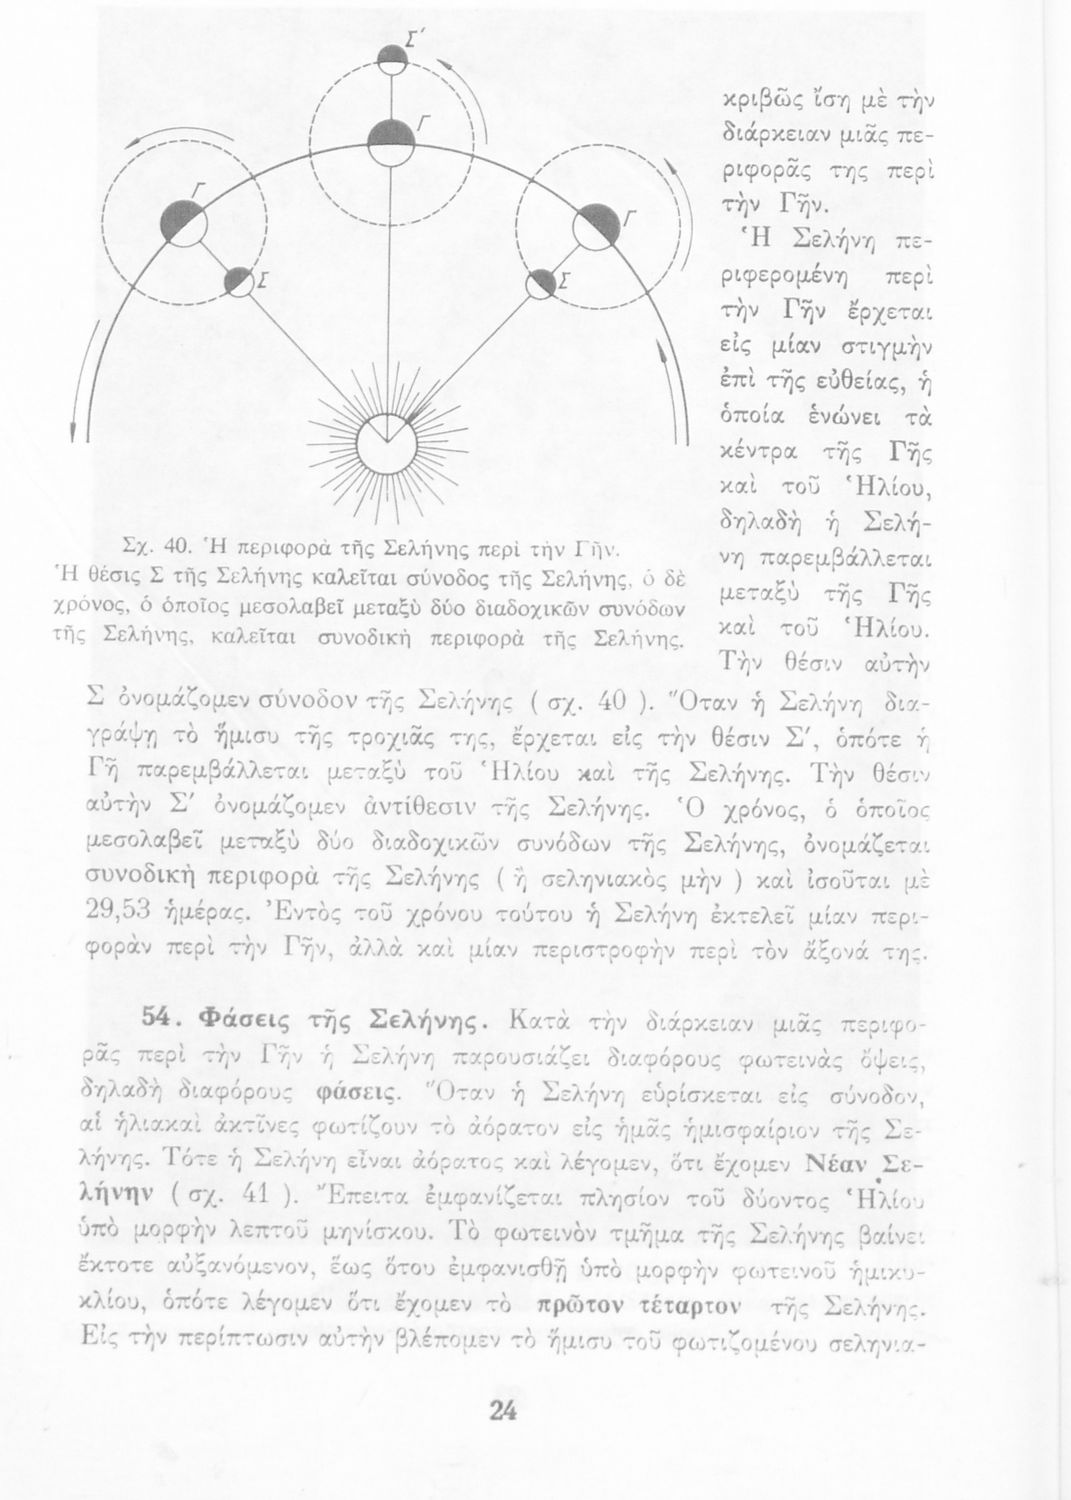 Σ′
Γ
Γ
Γ
Σ
Σ
Σχ. 40. Ἡ περιφορὰ τῆς Σελήνης περὶ τὴν Γῆν.
Ἡ θέσις Σ τῆς Σελήνης καλεῖται σύνοδος τῆς Σελήνης, ὁ δὲ
χρόνος, ὁ ὁποῖος μεσολαβεῖ μεταξὺ δύο διαδοχικῶν συνόδων
τῆς Σελήνης, καλεῖται συνοδικὴ περιφορὰ τῆς Σελήνης.
κριβῶς ἴση μὲ τὴν
διάρκειαν μιᾶς πε-
ριφορᾶς της περὶ
τὴν Γῆν.
Ἡ Σελήνη πε-
ριφερομένη περὶ
τὴν Γῆν ἔρχεται
εἰς μίαν στιγμὴν
ἐπὶ τῆς εὐθείας, ἡ
ὁποία ἑνώνει τὰ
κέντρα τῆς Γῆς
καὶ τοῦ Ἡλίου,
δηλαδὴ ἡ Σελή-
νη παρεμβάλλεται
μεταξὺ τῆς Γῆς
καὶ τοῦ Ἡλίου.
Τὴν θέσιν αὐτὴν
Σ ὀνομάζομεν σύνοδον τῆς Σελήνης ( σχ. 40 ). Ὅταν ἡ Σελήνη δια-
γράψῃ τὸ ἥμισυ τῆς τροχιᾶς της, ἔρχεται εἰς τὴν θέσιν Σ′, ὁπότε ἡ
Γῆ παρεμβάλλεται μεταξὺ τοῦ Ἡλίου καὶ τῆς Σελήνης. Τὴν θέσιν
αὐτὴν Σ′ ὀνομάζομεν ἀντίθεσιν τῆς Σελήνης. Ὁ χρόνος, ὁ ὁποῖος
μεσολαβεῖ μεταξὺ δύο διαδοχικῶν συνόδων τῆς Σελήνης, ὀνομάζεται
συνοδικὴ περιφορὰ τῆς Σελήνης ( ἢ σεληνιακὸς μὴν ) καὶ ἰσοῦται μὲ
29,53 ἡμέρας. Ἐντὸς τοῦ χρόνου τούτου ἡ Σελήνη ἐκτελεῖ μίαν περι-
φορὰν περὶ τὴν Γῆν, ἀλλὰ καὶ μίαν περιστροφὴν περὶ τὸν ἄξονά της.
54. Φάσεις τῆς Σελήνης. Κατὰ τὴν διάρκειαν μιᾶς περιφο-
ρᾶς περὶ τὴν Γῆν ἡ Σελήνη παρουσιάζει διαφόρους φωτεινὰς ὄψεις,
δηλαδὴ διαφόρους φάσεις. Ὅταν ἡ Σελήνη εὑρίσκεται εἰς σύνοδον,
αἱ ἡλιακαὶ ἀκτῖνες φωτίζουν τὸ ἀόρατον εἰς ἡμᾶς ἡμισφαίριον τῆς Σε-
λήνης. Τότε ἡ Σελήνη εἶναι ἀόρατος καὶ λέγομεν, ὅτι ἔχομεν Νέαν Σε-
λήνην ( σχ. 41 ). Ἔπειτα ἐμφανίζεται πλησίον τοῦ δύοντος Ἡλίου
ὑπὸ μορφὴν λεπτοῦ μηνίσκου. Τὸ φωτεινὸν τμῆμα τῆς Σελήνης βαίνει
ἔκτοτε αὐξανόμενον, ἕως ὅτου ἐμφανισθῇ ὑπὸ μορφὴν φωτεινοῦ ἡμικυ-
κλίου, ὁπότε λέγομεν ὅτι ἔχομεν τὸ πρῶτον τέταρτον τῆς Σελήνης.
Εἰς τὴν περίπτωσιν αὐτὴν βλέπομεν τὸ ἥμισυ τοῦ φωτιζομένου σεληνια-
24